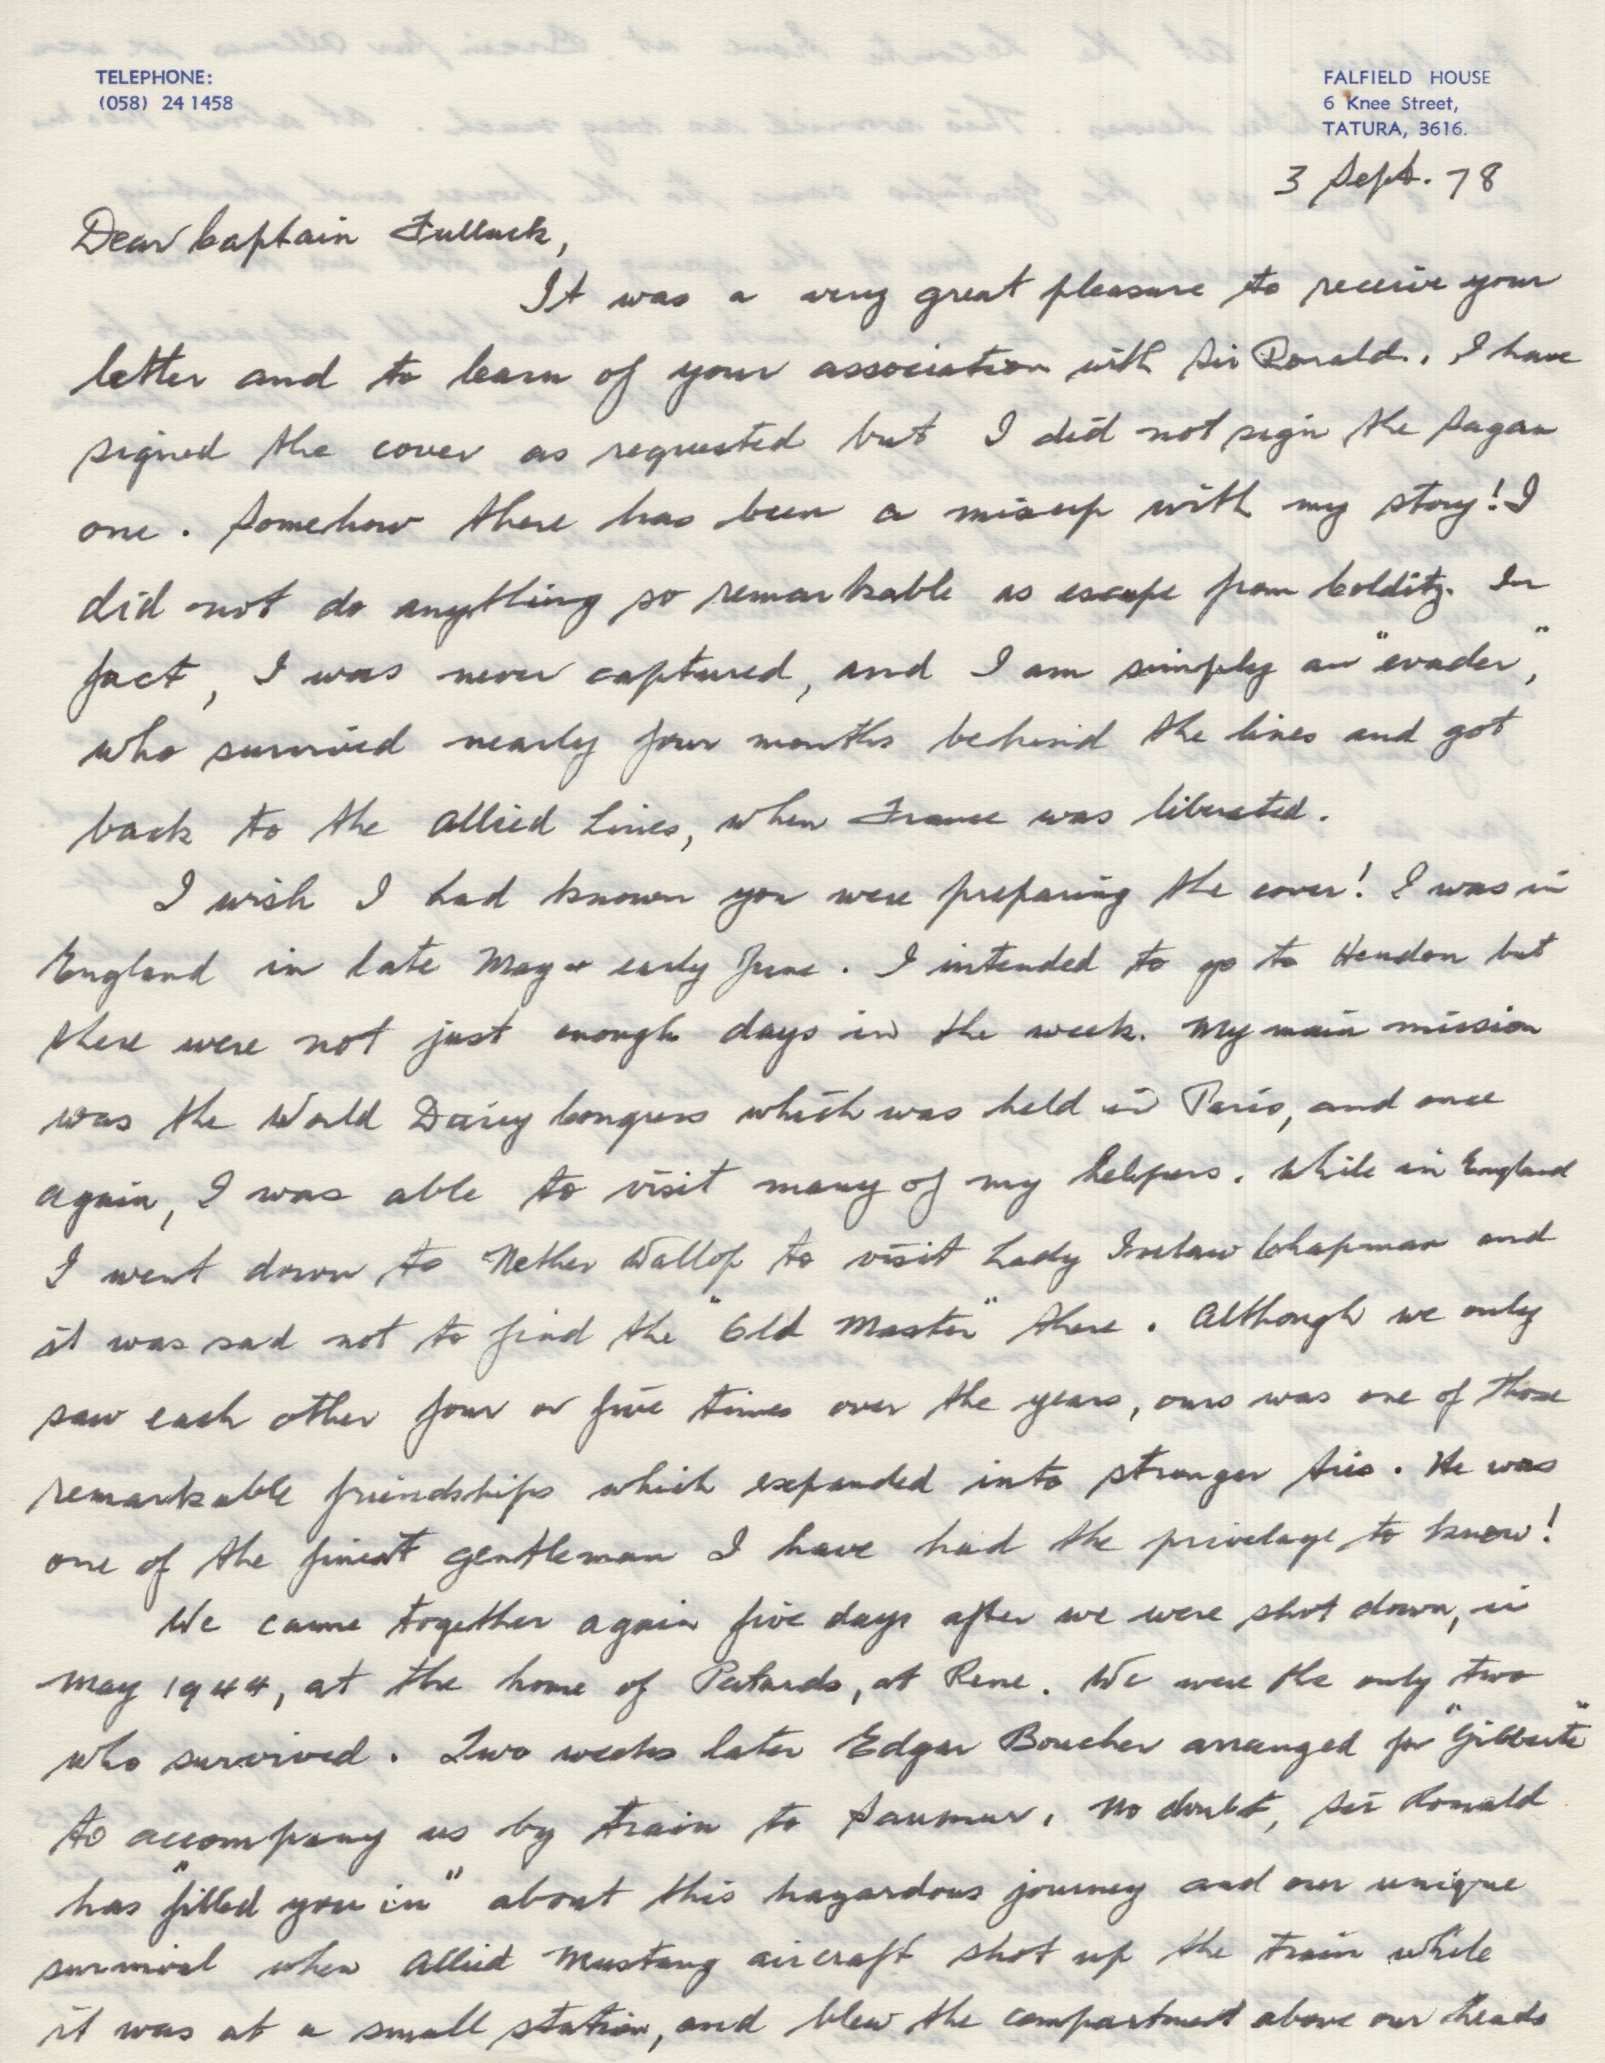 TELEPHONE:
(058) 24 1458
FALFIELD HOUSE
6 Knee Street,
TATURA, 3616.
3 Sept. 78
Dear Captain Tullock,
It was a very great pleasure to receive your
letter and to learn of your association with Sir Ronald. I have
signed the cover as requested but I did not sign the Sagan
one. Somehow there has been a mixup with my story! I
did not do anything so remarkable as escape from Colditz. In
fact, I was never captured, and I am simply an "evader",
who survived nearly four months behind the lines and got
back to the Allied Lines, when France was liberated.
I wish I had known you were preparing the cover! I was in
England in late May & early June. I intended to go to Hendon but
there were not just enough days in the week. My main mission
was the World Dairy Congress which was held in Paris, and once
again, I was able to visit many of my helpers. While in England
I went down to Nether Wallop to visit Lady Ivelaw Chapman and
it was sad not to find the "Old Master" there. Although we only
saw each other four or five times over the years, ours was one of those
remarkable friendships which expanded into stronger ties. He was
one of the finest gentleman I have had the privelage to know!
We came together again five days after we were shot down, in
May 1944, at the home of Pertards, at Rene. We were the only two
who survived. Two weeks later Edgar Boucher arranged for "Gilberte"
to accompany us by train to Saumur. No doubt, Sir Ronald
has "filled you in" about this hazardous journey and our unique
survival when Allied Mustang aircraft shot up the train while
it was at a small station, and blew the compartment above our heads